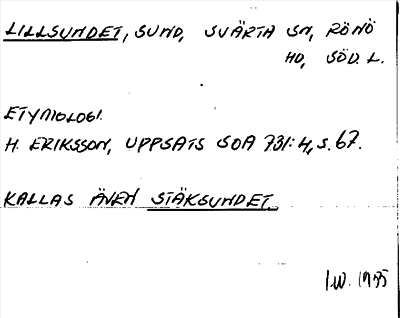 LILLSUNDET, SUND, SVÄRTA SN, RÖNÖ
HD, SÖD. L.
ETYMOLOGI.
H. ERIKSSON, UPPSATS SOA 731:4, S. 67.
KALLAS ÄVEN STÄKSUNDET.
I.W. 1975